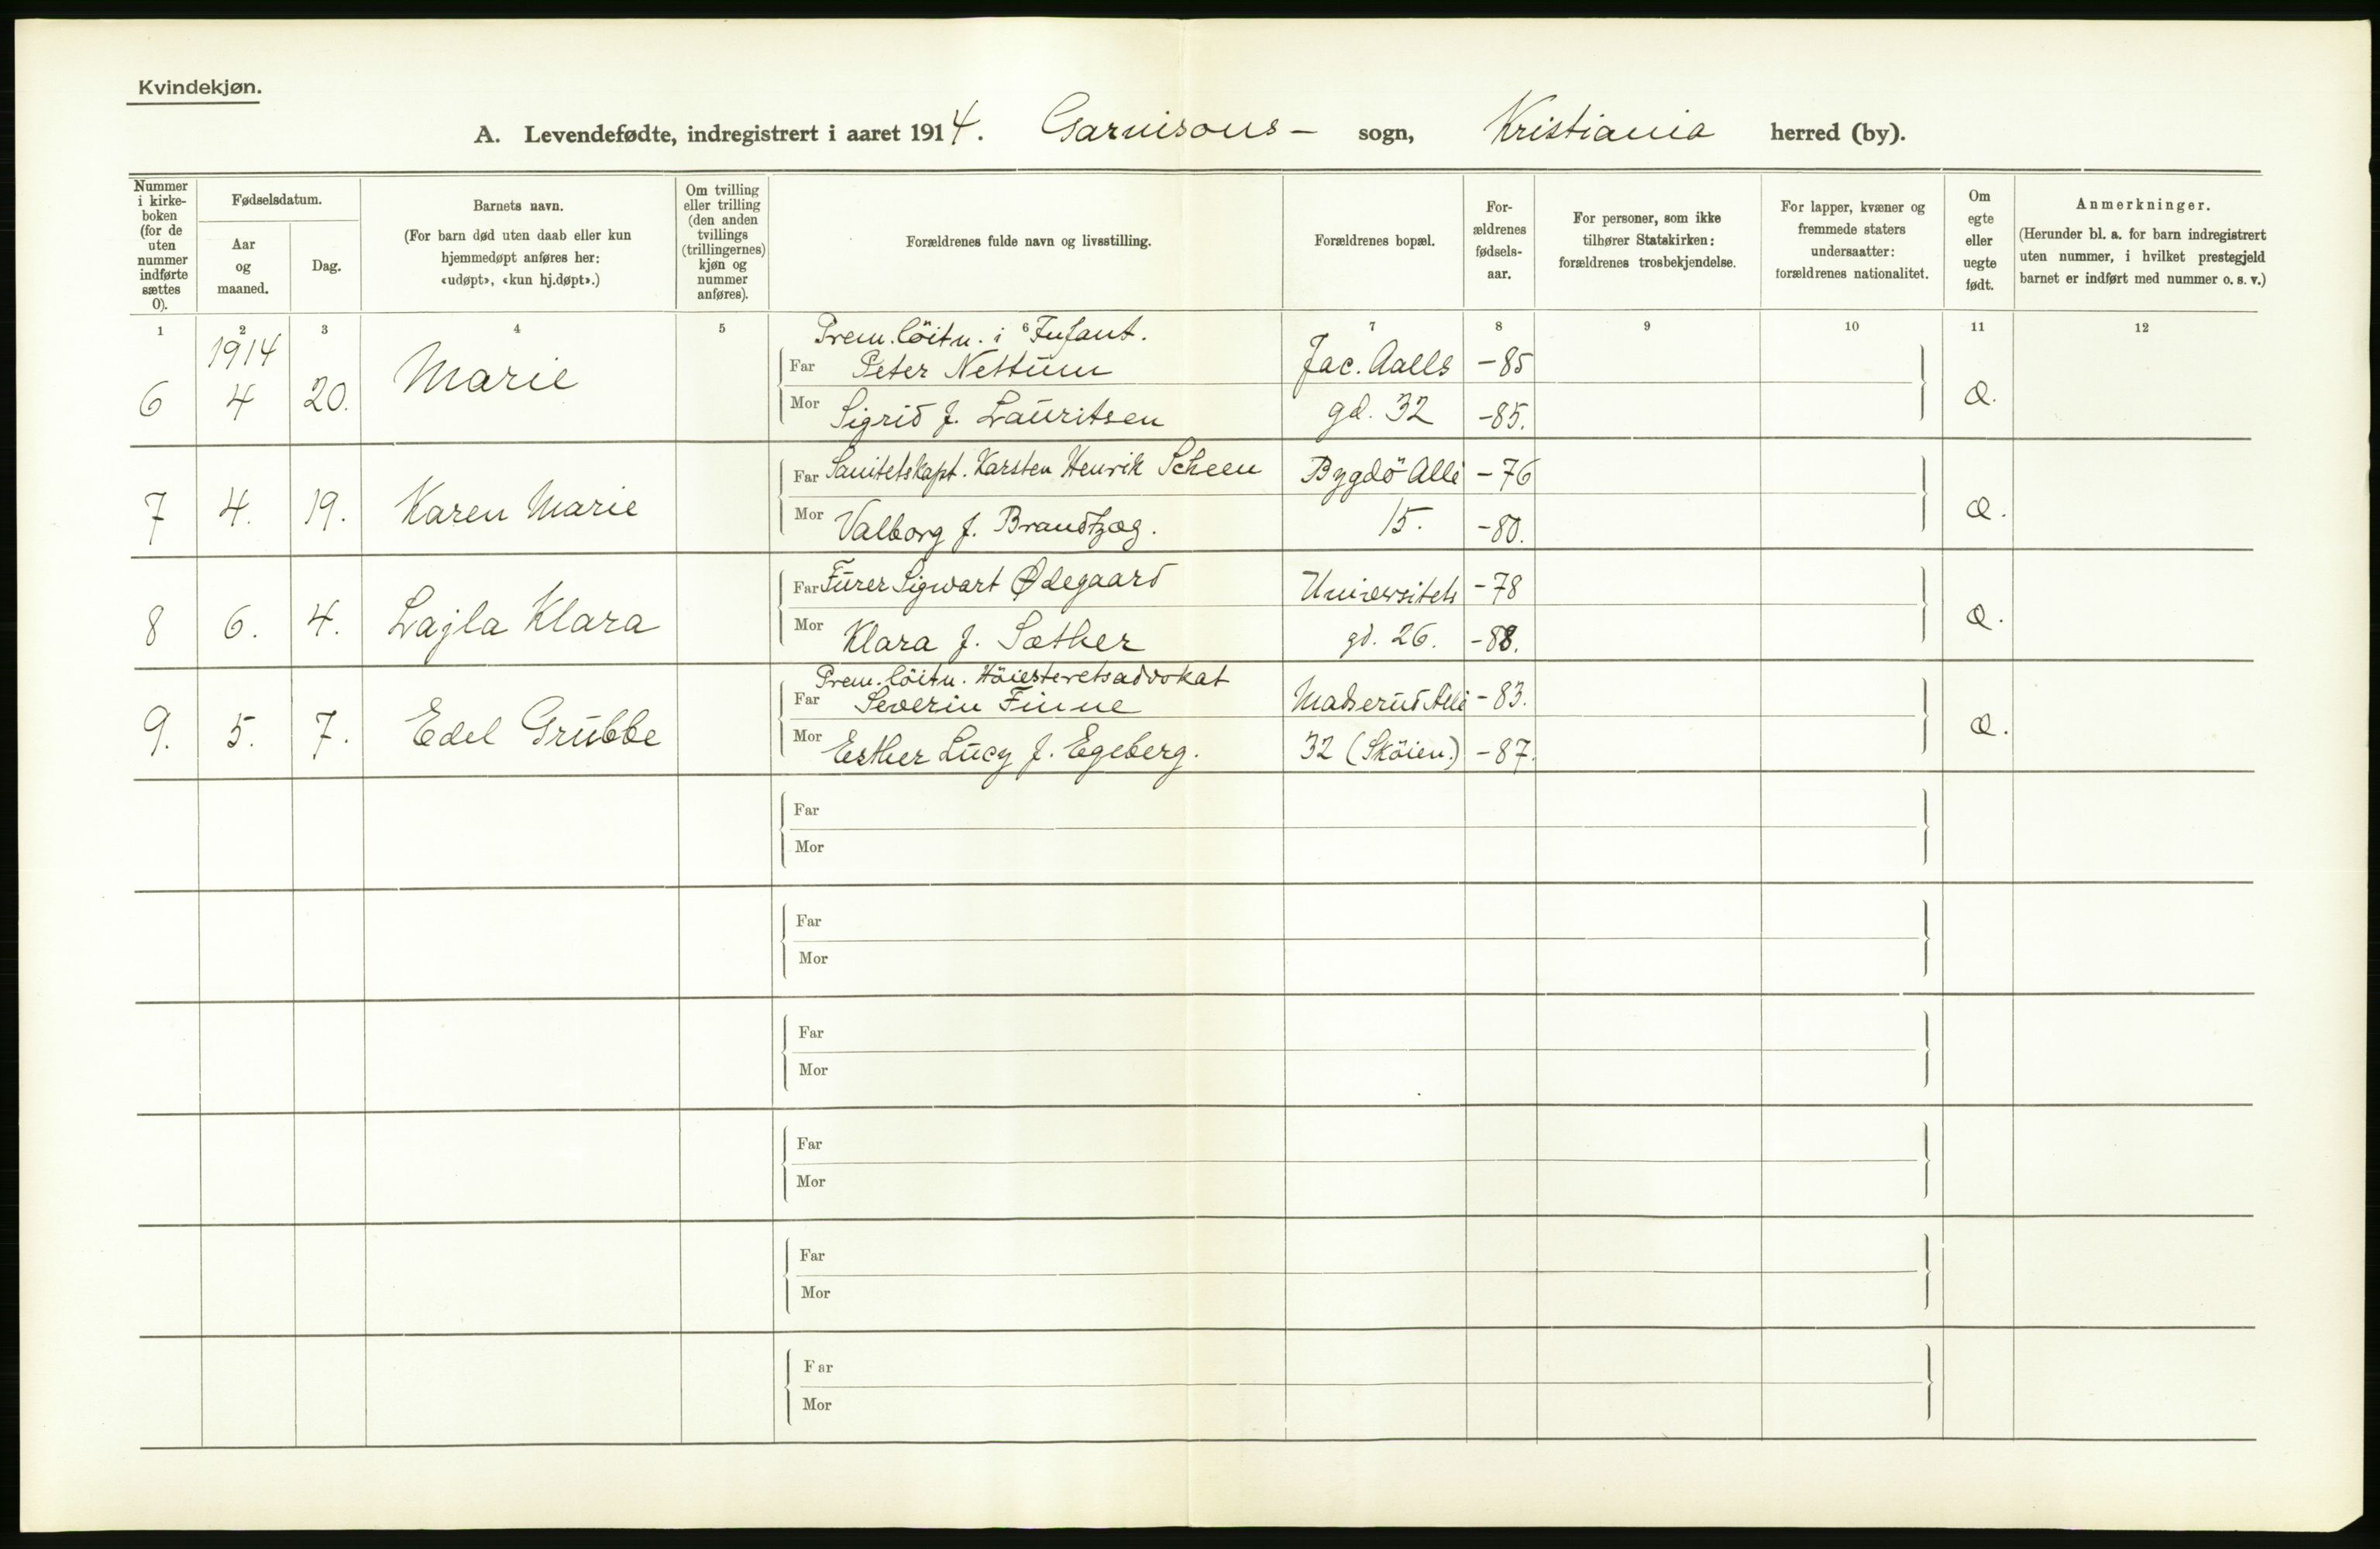 Kvindekjøn.
A. Levendefødte, indregistrert i aaret 1914. Garnisons- sogn, Kristiania herred (by).
Nummer i kirke-boken (for de uten nummer indførte sættes 0).
Fødselsdatum.
Aar og maaned.
Dag.
Barnets navn.
(For barn død uten daab eller kun hjemmedøpt anføres her: «udøpt», «kun hj.døpt».)
Om tvilling eller trilling (den anden tvillings (trillingernes) kjøn og nummer anføres).
Forældrenes fulde navn og livsstilling.
Forældrenes bopæl.
For-ældrenes fødsels-aar.
For personer, som ikke tilhører Statskirken: forældrenes trosbekjendelse.
For lapper, kvæner og fremmede staters undersaatter: forældrenes nationalitet.
Om egte eller uegte født.
Anmerkninger.
(Herunder bl. a. for barn indregistrert uten nummer, i hvilket prestegjeld barnet er indført med nummer o. s. v.)
1 2 3 4 5 6 7 8 9 10 11 12
1914
Prem.löitn. i Infant.
6 4 20. Marie Far Peter Nettum Jac. Aalls -85 Æ.
Mor Sigrid f. Lauritsen gd. 32 -85.
7 4. 19. Karen Marie Far Sanitetskapt. Karsten Henrik Scheen Bygdö Allé -76 Æ.
Mor Valborg f. Brandtzæg. 15. -80.
8 6. 4. Lajla Klara Far Furer Sigwart Ødegaard Universitets -78 Æ.
Mor Klara f. Sæther gd. 26. -88.
Prem.löitn. Höiesteretsadvokat
9. 5. 7. Edel Grubbe Far Severin Finne Madserud Allé -83. Æ.
Mor Esther Lucy f. Egeberg. 32 (Sköien.) -87.
Far
Mor
Far
Mor
Far
Mor
Far
Mor
Far
Mor
Far
Mor